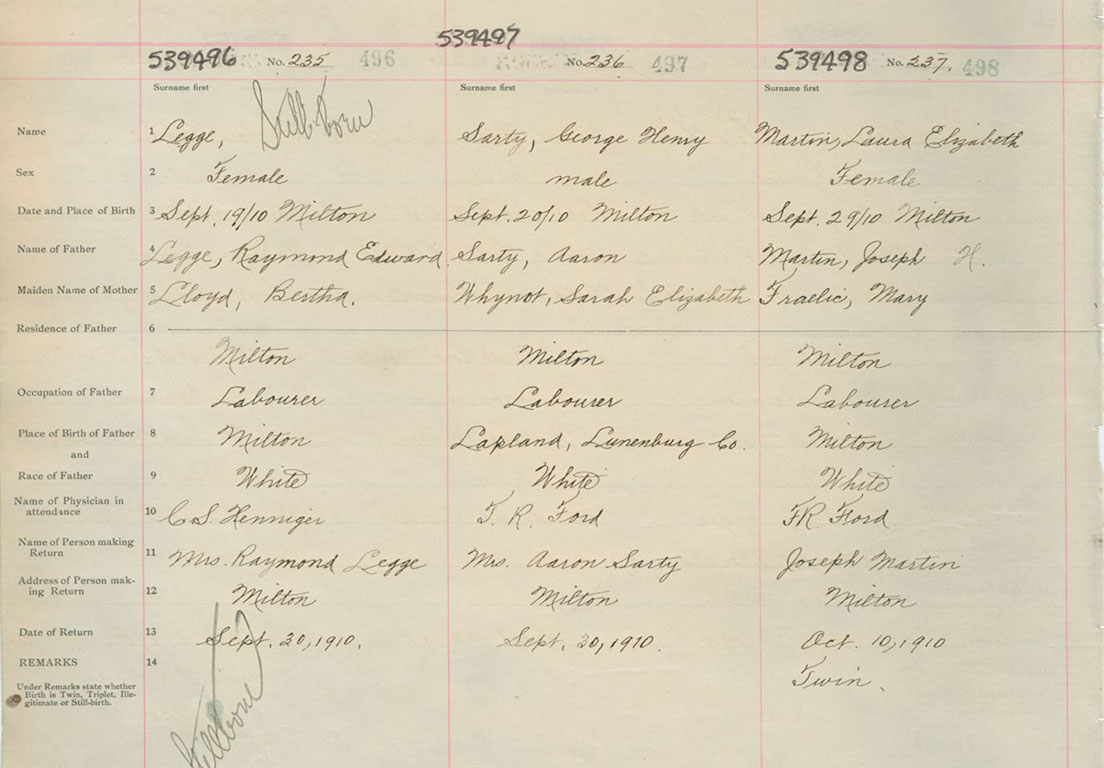 539497
539496 No. 235 496 No. 236 497 539498 No. 237. 498
Surname first Surname first Surname first
Still-born
Name 1 Legge, Sarty, George Henry Martin, Laura Elizabeth
Sex 2 Female male Female
Date and Place of Birth 3 Sept. 19/10 Milton Sept. 20/10 Milton Sept. 29/10 Milton
Name of Father 4 Legge, Raymond Edward. Sarty, Aaron Martin, Joseph H.
Maiden Name of Mother 5 Lloyd, Bertha. Whynot, Sarah Elizabeth Fraelic, Mary
Residence of Father 6
Milton Milton Milton
Occupation of Father 7 Labourer Labourer Labourer
Place of Birth of Father 8 Milton Lapland, Lunenburg Co. Milton
and
Race of Father 9 White White White
Name of Physician in
attendance 10 C. S. Henniger F. R. Ford F.R. Ford
Name of Person making
Return 11 Mrs. Raymond Legge Mrs. Aaron Sarty Joseph Martin
Address of Person mak-
ing Return 12 Milton Milton Milton
Date of Return 13 Sept. 30, 1910. Sept. 30, 1910. Oct. 10, 1910
REMARKS 14
Twin.
Under Remarks state whether
Birth is Twin, Triplet, Ille-
gitimate or Still-birth.
Stillborn